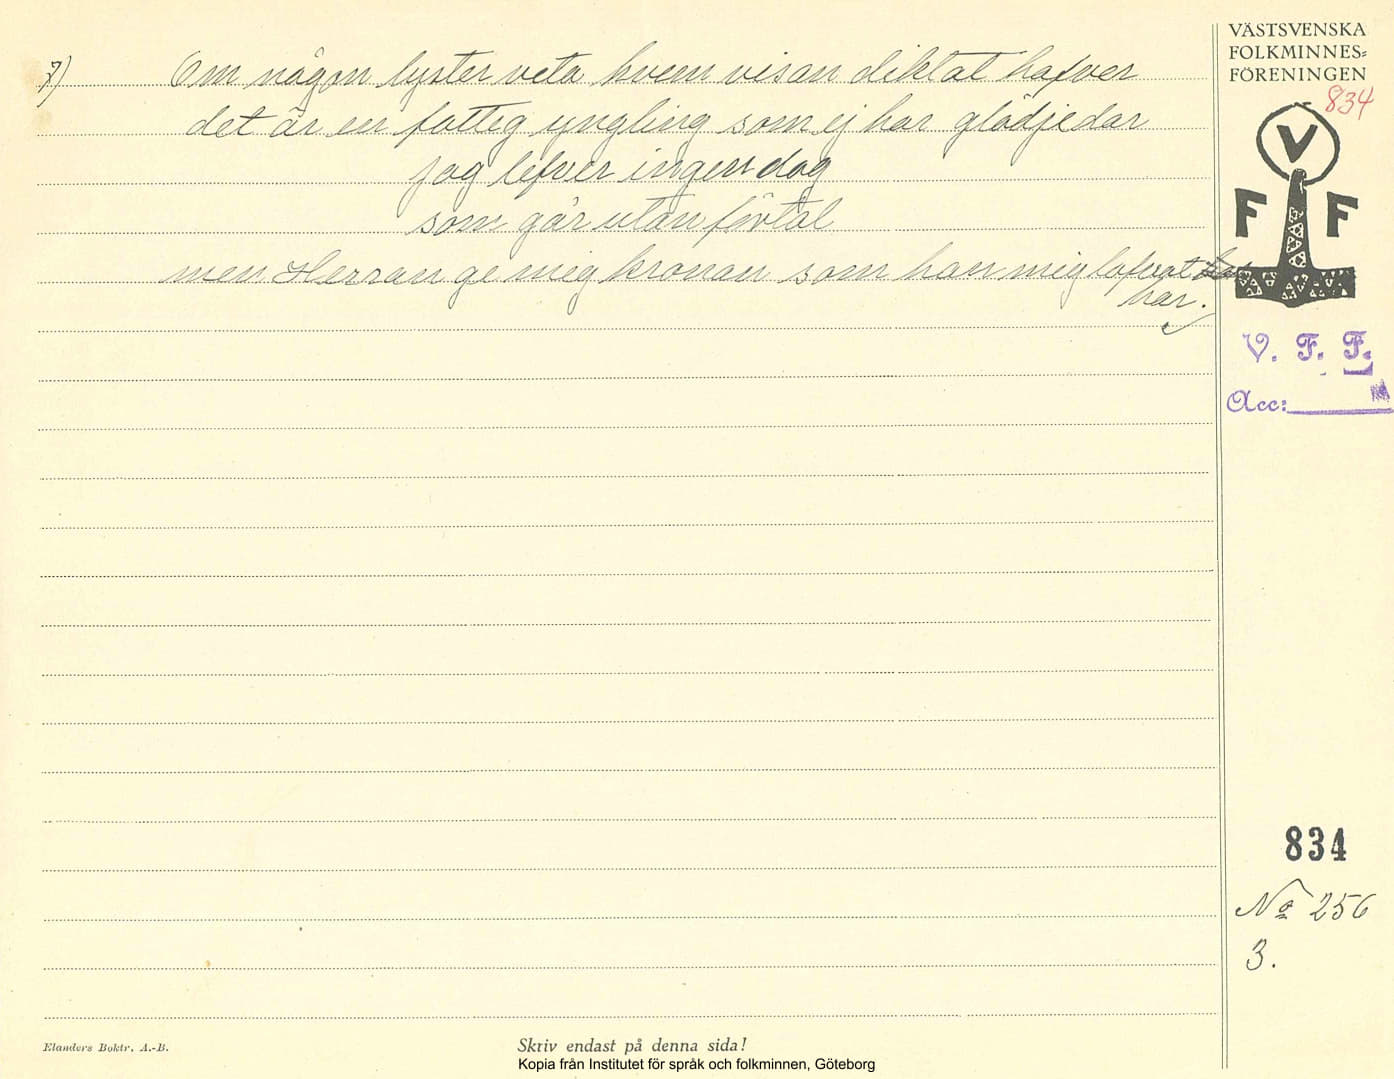 7) Om någon lyster veta hvem visan diktat hafver
det är en fattig yngling som ej har glädjedar
jag lefver ingen dag
som går utan förtal
men Herran ge mig kronan som han mig lofvat
har.
VÄSTSVENSKA
FOLKMINNES=
FÖRENINGEN
834
V
F F
V. F. F.
Acc:
834
No 256
3.
Elanders Boktr. A.-B.
Skriv endast på denna sida!
Kopia från Institutet för språk och folkminnen, Göteborg